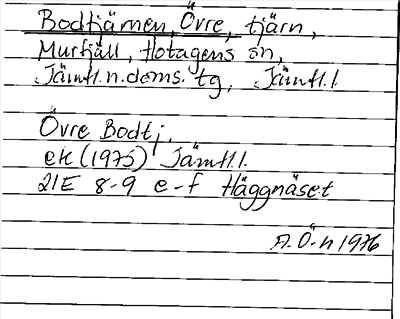 Bodtjärnen, Övre, tjärn,
Murfjäll, Hotagens sn,
Jämtl.n.doms.tg, Jämtl.l.
Övre Bodtj.
ek (1975) Jämtl.l.
21E 8-9 e-f Häggnäset
A.Ö-n 1976